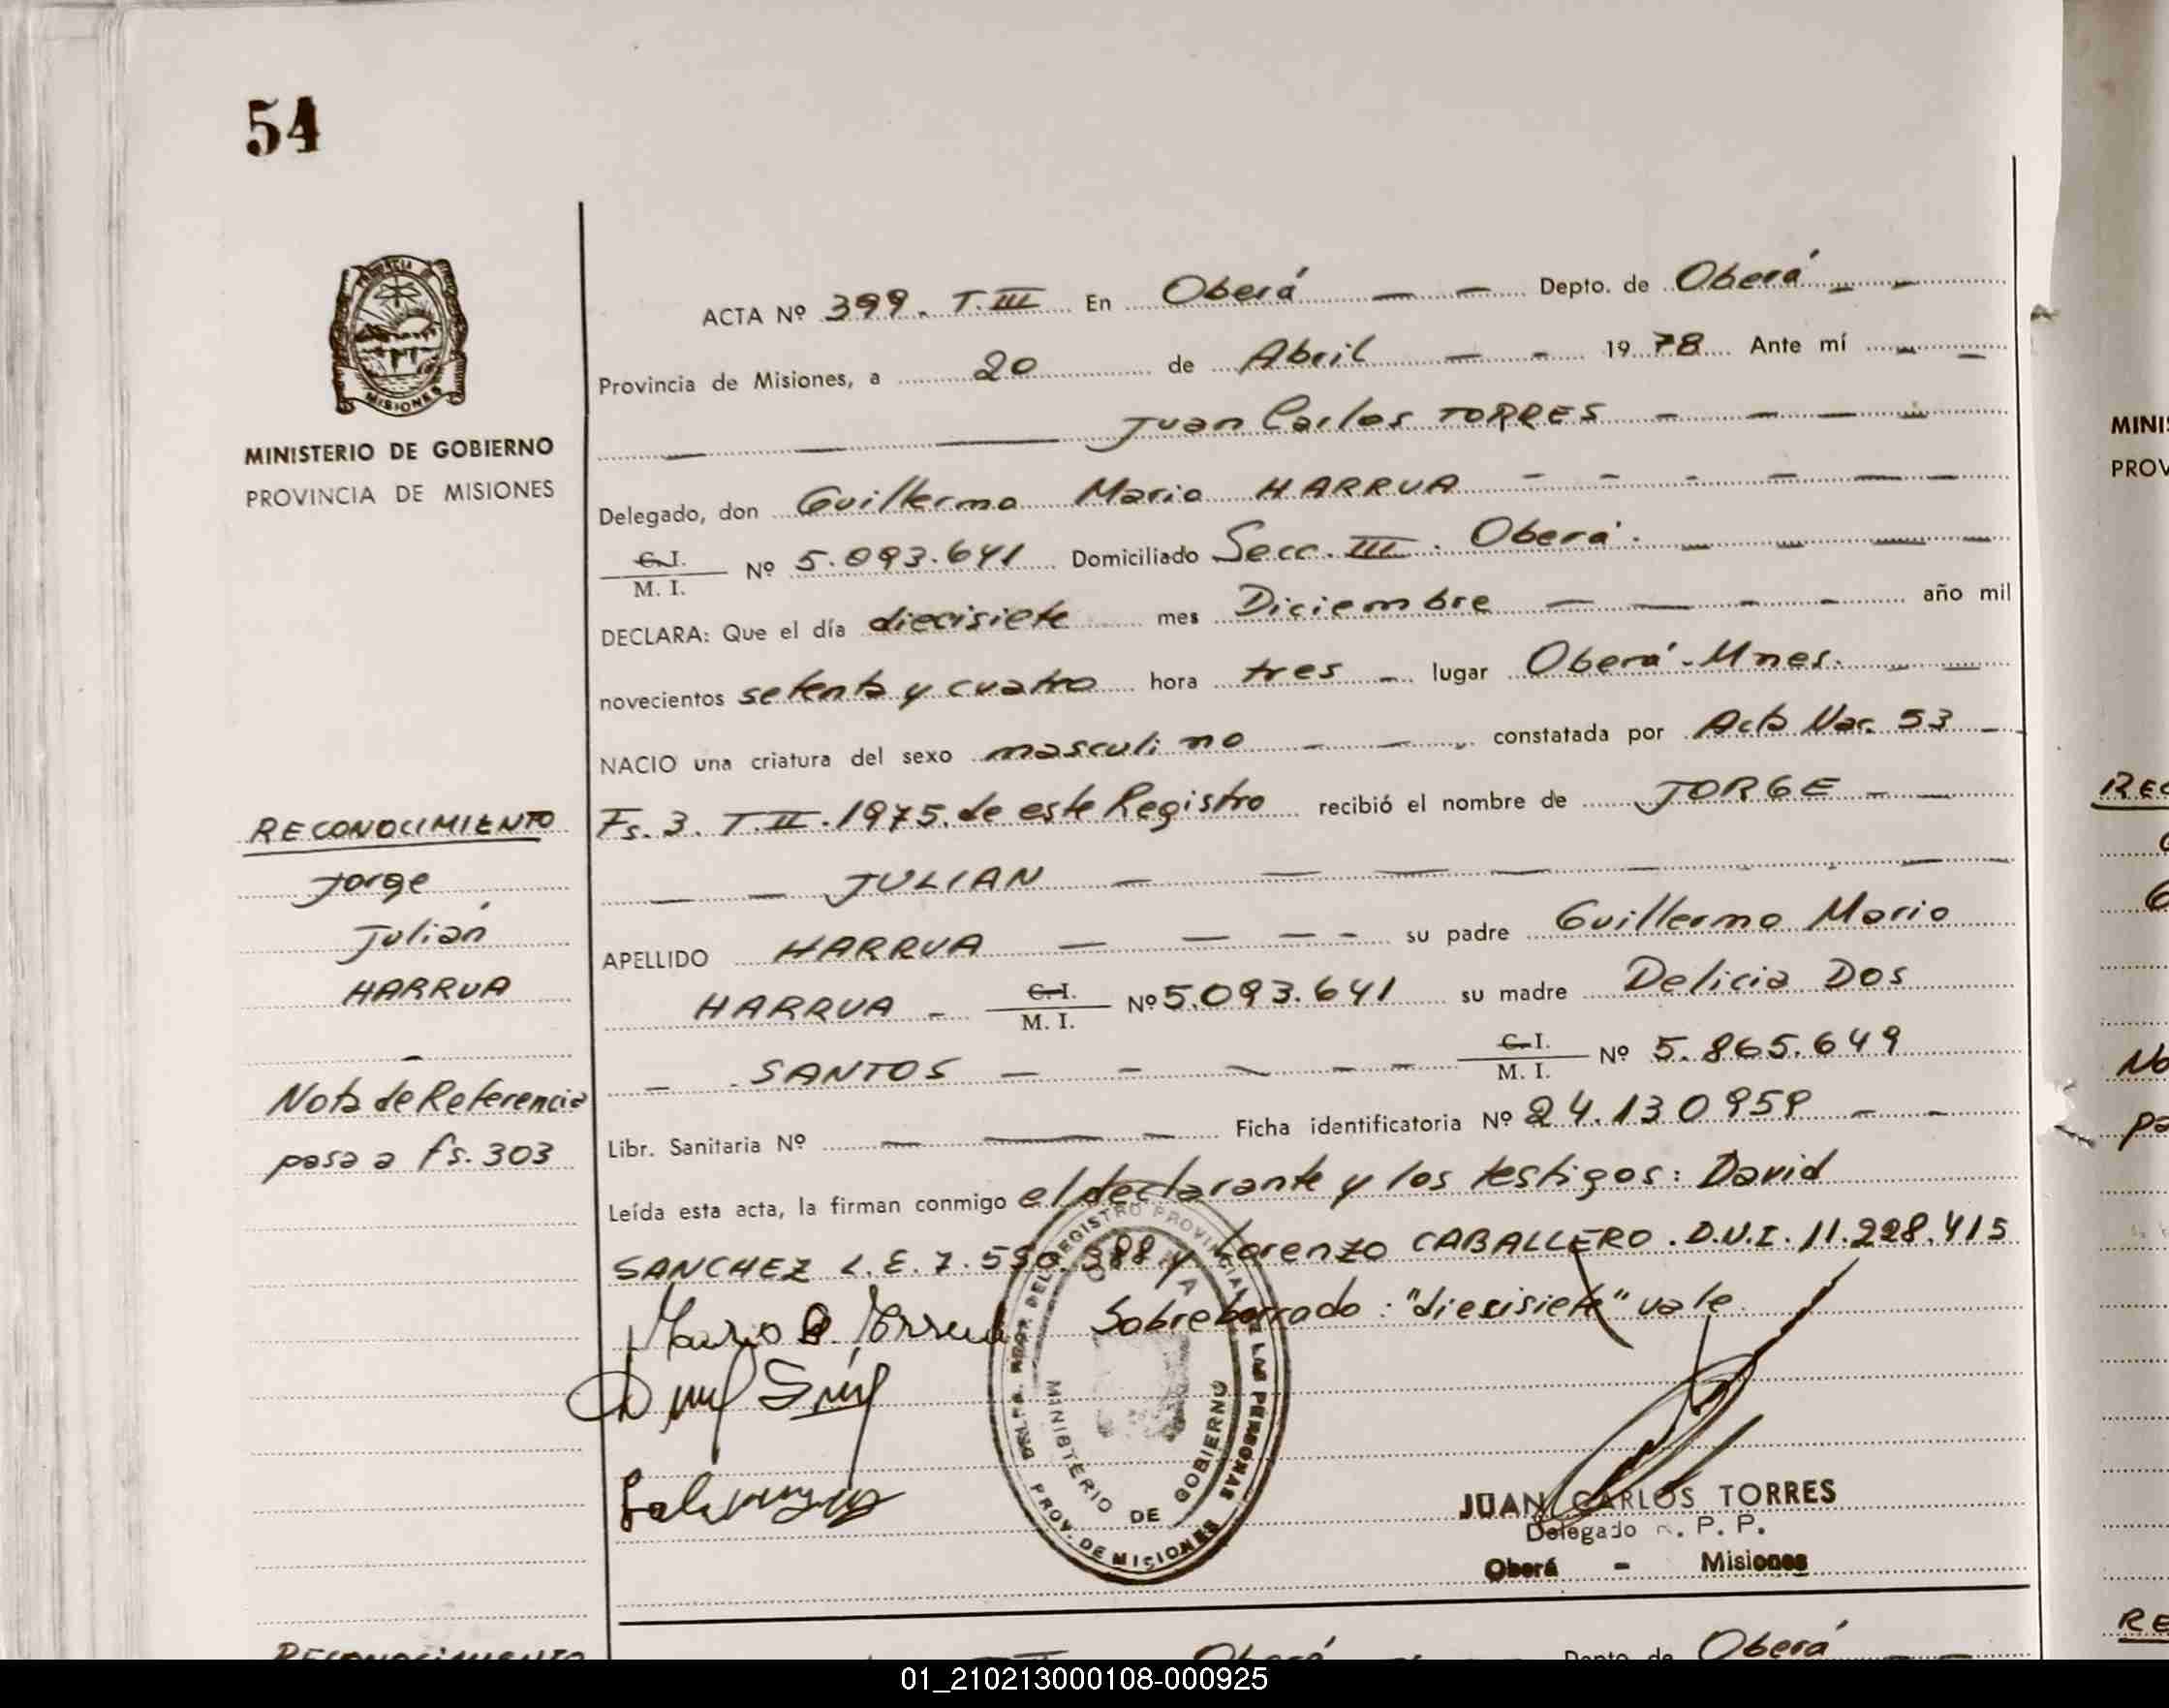 54
PROVINCIA
MISIONES
MINISTERIO DE GOBIERNO
PROVINCIA DE MISIONES
ACTA Nº 399. T.III En Oberá — — Depto. de Oberá — —
Provincia de Misiones, a 20 de Abril — — 19 78 Ante mí — —
— — — Juan Carlos TORRES — — — —
Delegado, don Guillermo Mario HARRUA — — — — — —
C.I.
M. I. Nº 5.093.641 Domiciliado Secc. III. Oberá. — — — —
DECLARA: Que el día diecisiete mes Diciembre — — — — año mil
novecientos setenta y cuatro hora tres — lugar Oberá - Mnes. — —
NACIO una criatura del sexo masculino — — — constatada por Acta Nac. 53 —
Fs. 3. T.II. 1975. de este Registro recibió el nombre de JORGE — —
— — JULIAN — — — — — —
APELLIDO HARRUA — — — — su padre Guillermo Mario
HARRUA — C.I.
M. I. Nº 5.093.641 su madre Delicia DOS
— SANTOS — — — — — C.I.
M. I. Nº 5.865.649
Libr. Sanitaria Nº — — — Ficha identificatoria Nº 24.130959 — —
Leída esta acta, la firman conmigo el declarante y los testigos: David
SANCHEZ L.E. 7.550.388 y Lorenzo CABALLERO. D.N.I. 11.228.415
Sobreborrado: "diecisiete" vale.
RECONOCIMIENTO
Jorge
Julián
HARRUA
—
Nota de Referencia
pasa a fs. 303
MINISTERIO DE GOBIERNO
PROV. DE MISIONES
JUAN CARLOS TORRES
Delegado R. P. P.
Oberá - Misiones
RECONOCIMIENTO
Oberá Depto de Oberá
MINIS
PROV
REC
No
pa
RE
01_210213000108-000925